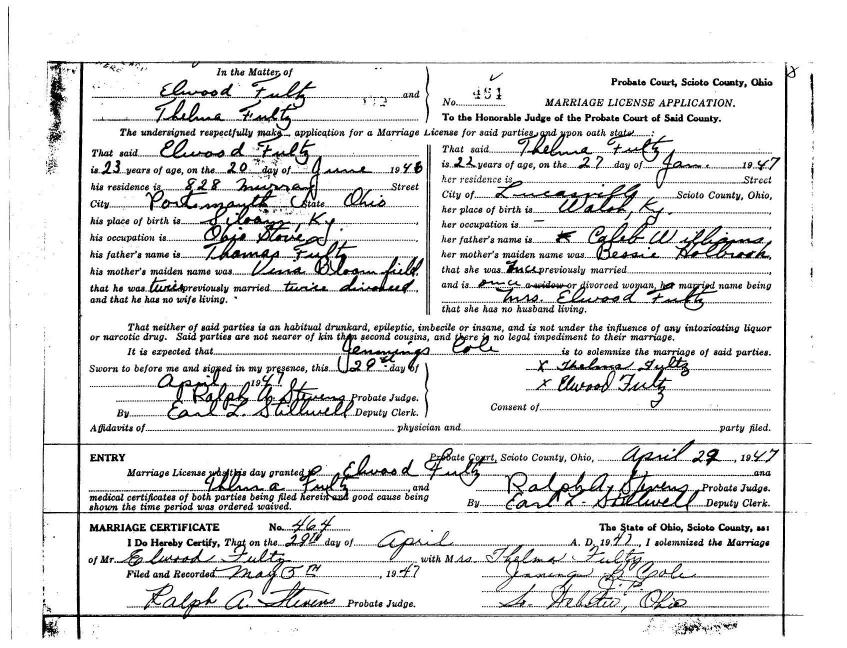 In the Matter of
Elwood Fultz and
Thelma Fultz
Probate Court, Scioto County, Ohio
No. 461 MARRIAGE LICENSE APPLICATION.
To the Honorable Judge of the Probate Court of Said County.
The undersigned respectfully make application for a Marriage License for said parties, and upon oath state:
That said Elwood Fultz
is 23 years of age, on the 20 day of June 1946
his residence is 828 Murray Street
City Portsmouth State Ohio
his place of birth is Siloam, Ky.
his occupation is Ohio Stove
his father's name is Thomas Fultz
his mother's maiden name was Vina Bloomfield
that he was twice previously married twice divorced
and that he has no wife living.
That said Thelma Fultz
is 22 years of age, on the 27 day of Jan. 1947
her residence is Street
City of Lucasville Scioto County, Ohio,
her place of birth is Walsh, Ky.
her occupation is —
her father's name is Caleb Williams
her mother's maiden name was Bessie Holbrook
that she was once previously married
and is once a widow or divorced woman, her married name being
Mrs. Elwood Fultz
that she has no husband living.
That neither of said parties is an habitual drunkard, epileptic, imbecile or insane, and is not under the influence of any intoxicating liquor
or narcotic drug. Said parties are not nearer of kin than second cousins, and there is no legal impediment to their marriage.
It is expected that Jennings Cole is to solemnize the marriage of said parties.
Sworn to before me and signed in my presence, this 29 day of
April 1947
Ralph A. Stevens Probate Judge.
By Earl L. Stillwell Deputy Clerk.
X Thelma Fultz
X Elwood Fultz
Consent of
Affidavits of physician and party filed.
ENTRY Probate Court, Scioto County, Ohio, April 29, 1947
Marriage License was this day granted to Elwood Fultz and
Thelma Fultz, and
medical certificates of both parties being filed herein and good cause being
shown the time period was ordered waived.
Ralph A. Stevens Probate Judge.
By Earl L. Stillwell Deputy Clerk.
MARRIAGE CERTIFICATE No. 464 The State of Ohio, Scioto County, ss:
I Do Hereby Certify, That on the 29th day of April A. D. 1947, I solemnized the Marriage
of Mr. Elwood Fultz with Mrs. Thelma Fultz
Filed and Recorded May 5TH, 1947
Jennings Cole
J.P.
Ralph A. Stevens Probate Judge. So. Webster, Ohio